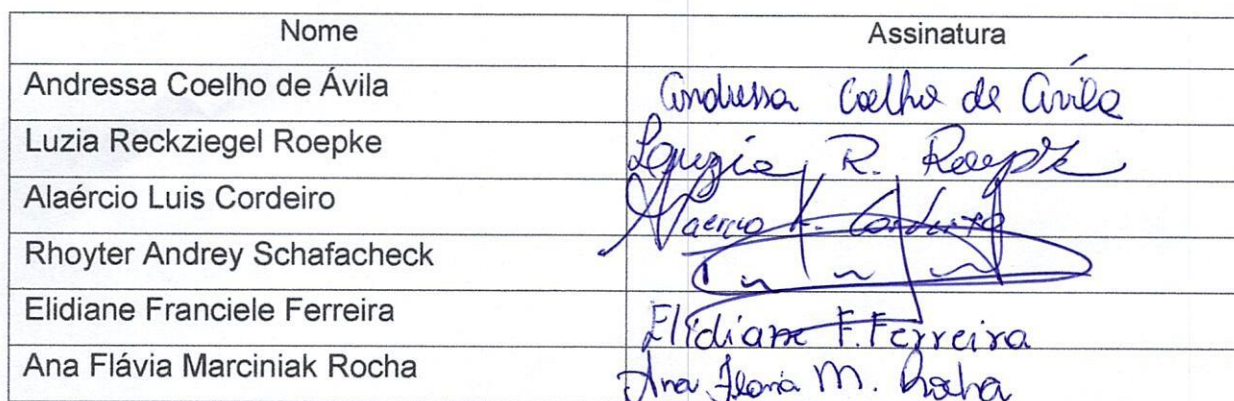 Nome Assinatura
Andressa Coelho de Ávila Andressa Coelho de Avila
Luzia Reckziegel Roepke Luzia R. Roepke
Alaércio Luis Cordeiro Alaercio L. Cordeiro
Rhoyter Andrey Schafacheck
Elidiane Franciele Ferreira Elidiane F. Ferreira
Ana Flávia Marciniak Rocha Ana Flavia M. Rocha